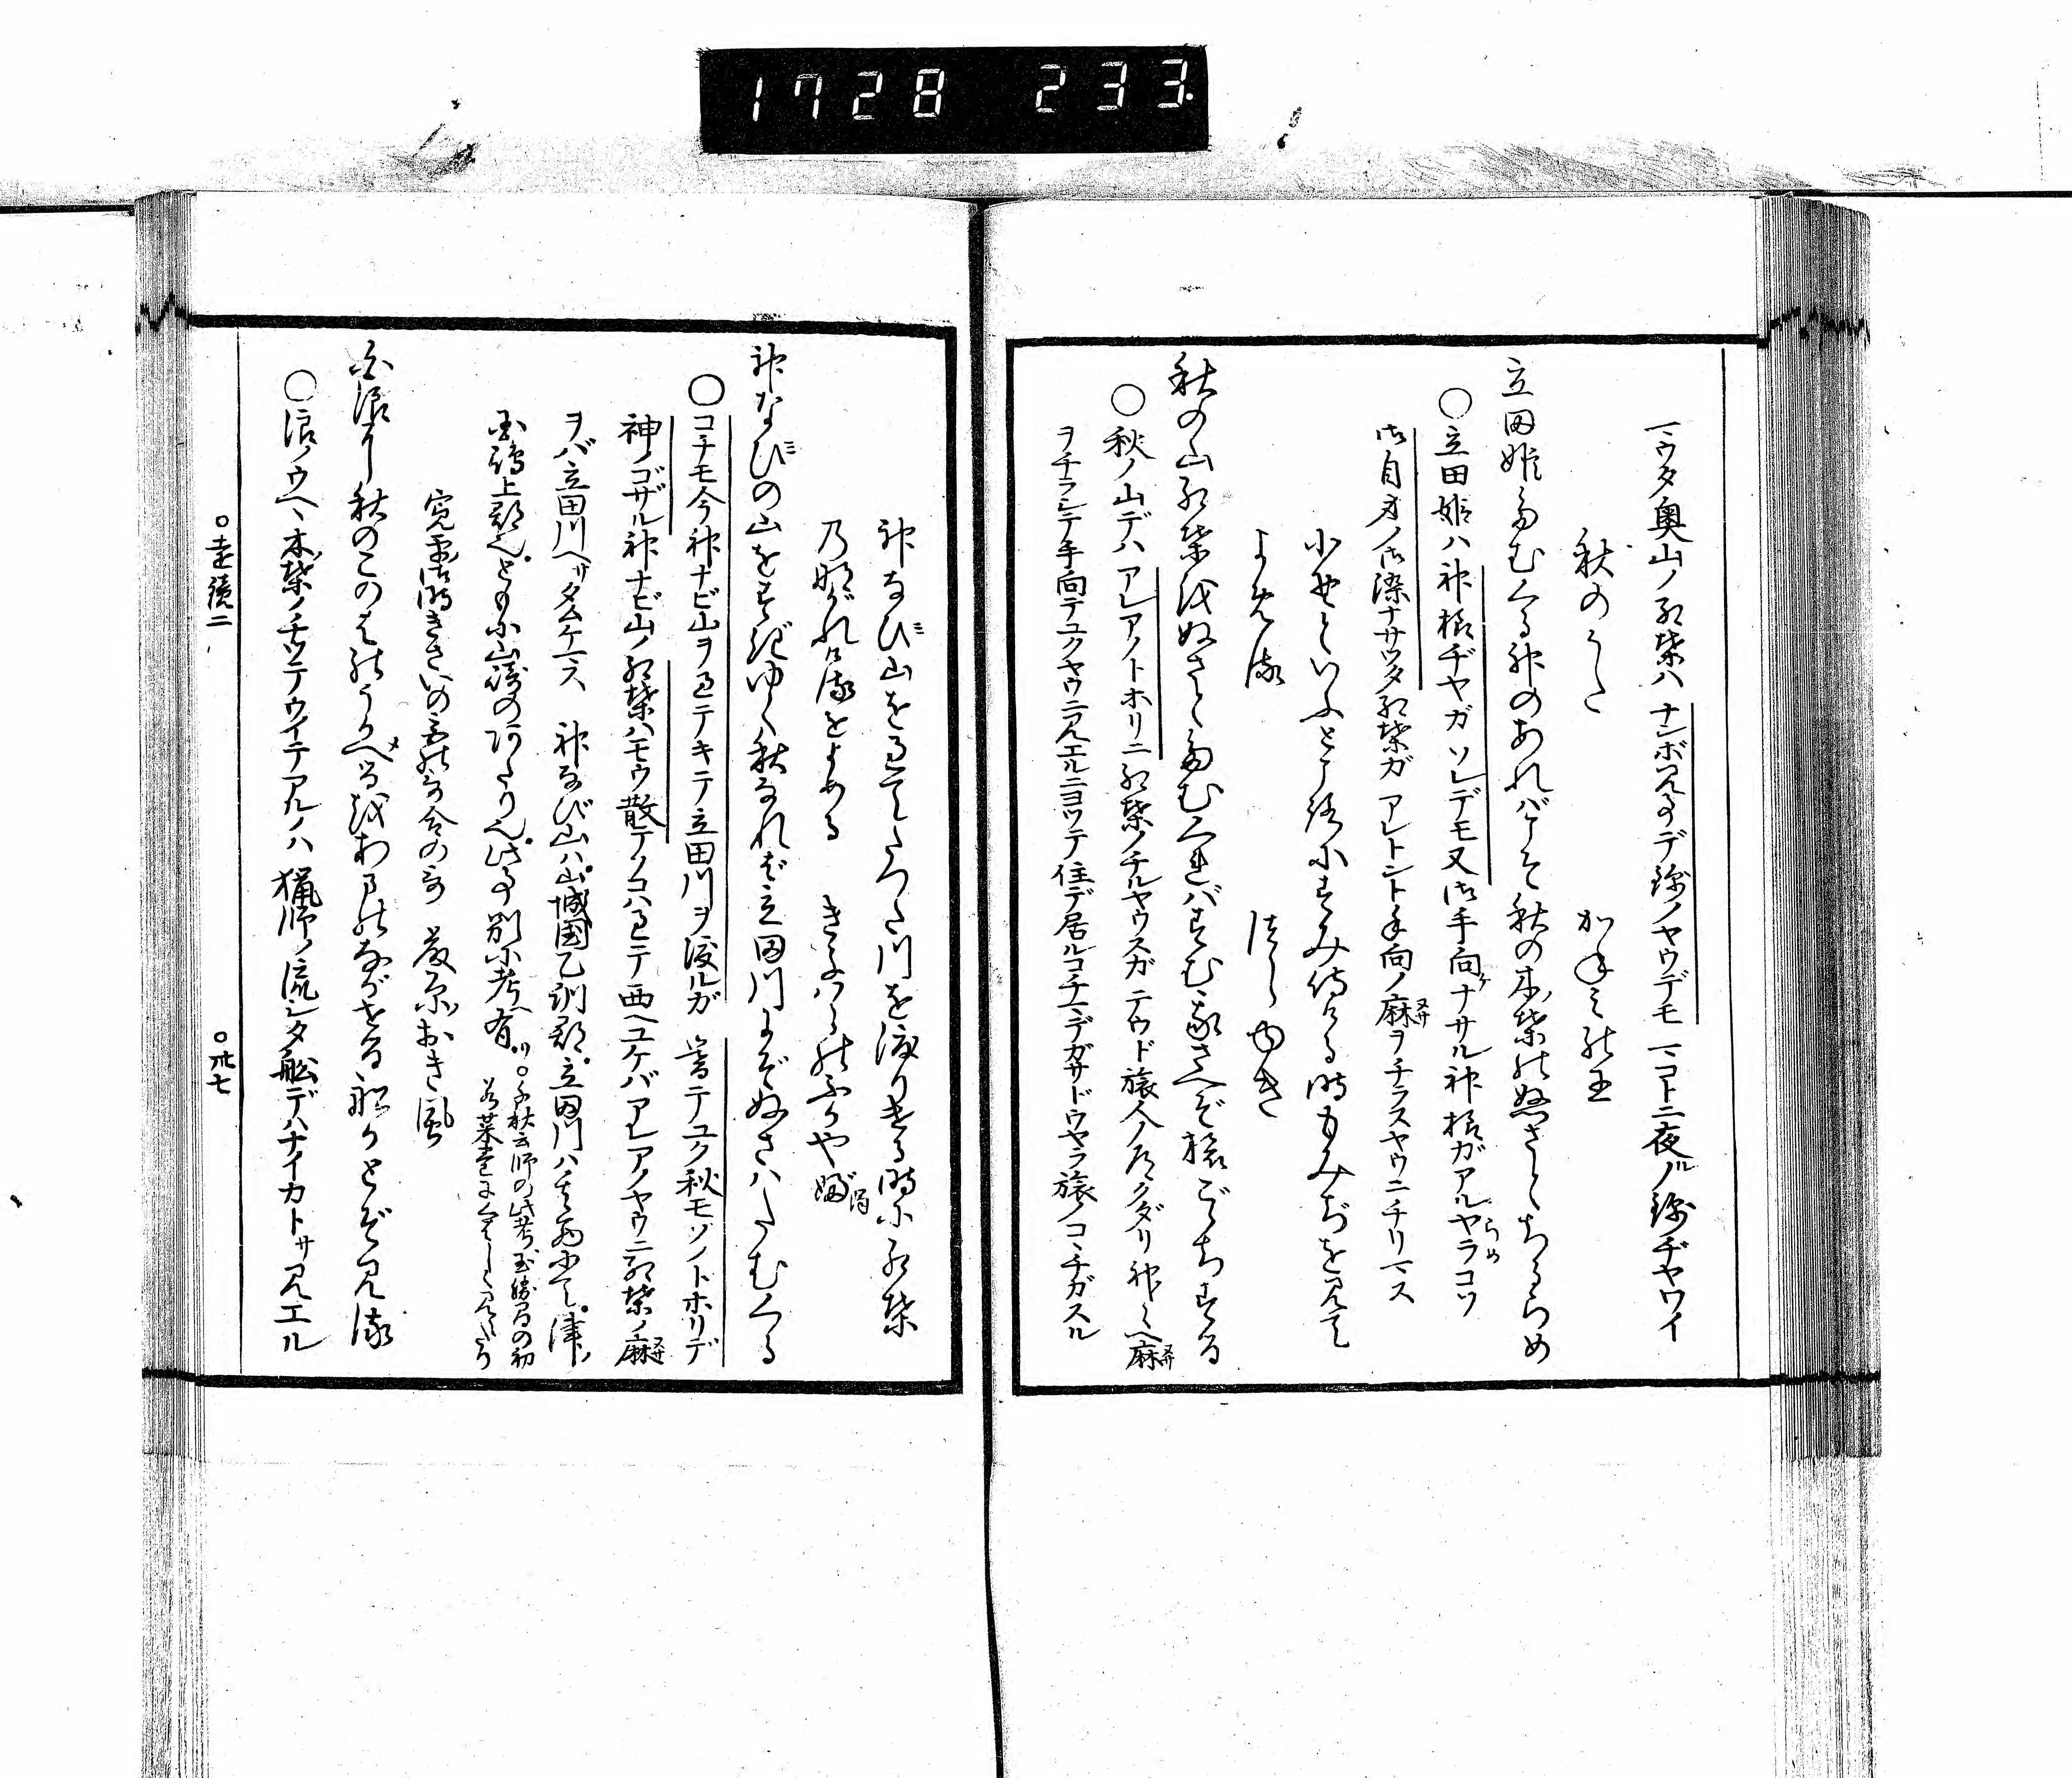 1728 233
マウタ奥山ノ紅葉ハナンボ見事デ錦ノヤウデモマコトニ夜ルノ錦ヂヤワイ
秋のうた かねみの王
立田姫たむくる神のあれバこそ秋の木ノ葉のぬさとちるらめ
○立田姫ハ神様ヂヤガソレデモ又御手向ケナサル神様ガアルヤラコソらめ
御自身ノ御染ナサツタ紅葉ガアレトントタ向ノ麻ヲチラスヤウニチリマス
小野といふところにすみ侍ける時もみぢを見て
よめる つらゆき
秋の山紅葉をぬさとたむくれバすむ我さへぞ旅ごこちする
○秋ノ山デハアレアノトホリニ紅葉ノチルヤウスガテウド旅人ノ神々ヘ麻
ヲチラシテ手向テユクヤウニ見エルニヨツテ住デ居ルコチマデガサドウヤラ旅ノコヽチガスル
神なび山をすぎてたつた川を渡りける時に紅葉
乃ながれけるをよめる きよハらのふかやぶ
神なびの山をすぎゆく秋なれば立田川にぞぬさハたむくる
○コチモ今神ナビ山ヲ過テキテ立田川ヲ渡ルガ 暮テユク秋モソノトホリデ
神ノゴザル神ナビ山ノ紅葉ハモウ散テノコハ過テ西ヘユケバアレアノヤウニ紅葉ノ麻
ヲバ立田川ヘサタムケマス 神なび山ハ山城国乙訓郡立田川ハ其西にて津ノ
国嶋上郡也ともに山崎のあたり也此事別に考ヘ有リ○千秋云師の此考玉勝間の初
若菜巻にくはしく見えたり
寛平御時きさいの宮の歌合の歌 藤原おき風
白浪に秋のこのはのうかべるをあまのながせる船かとぞ見る
○浪ノウヘヽ木ノ葉ノチツテウイテアルノハ猟師ノ流シタ舩デハナイカトサ見エル
○遠鏡二 ○卅七